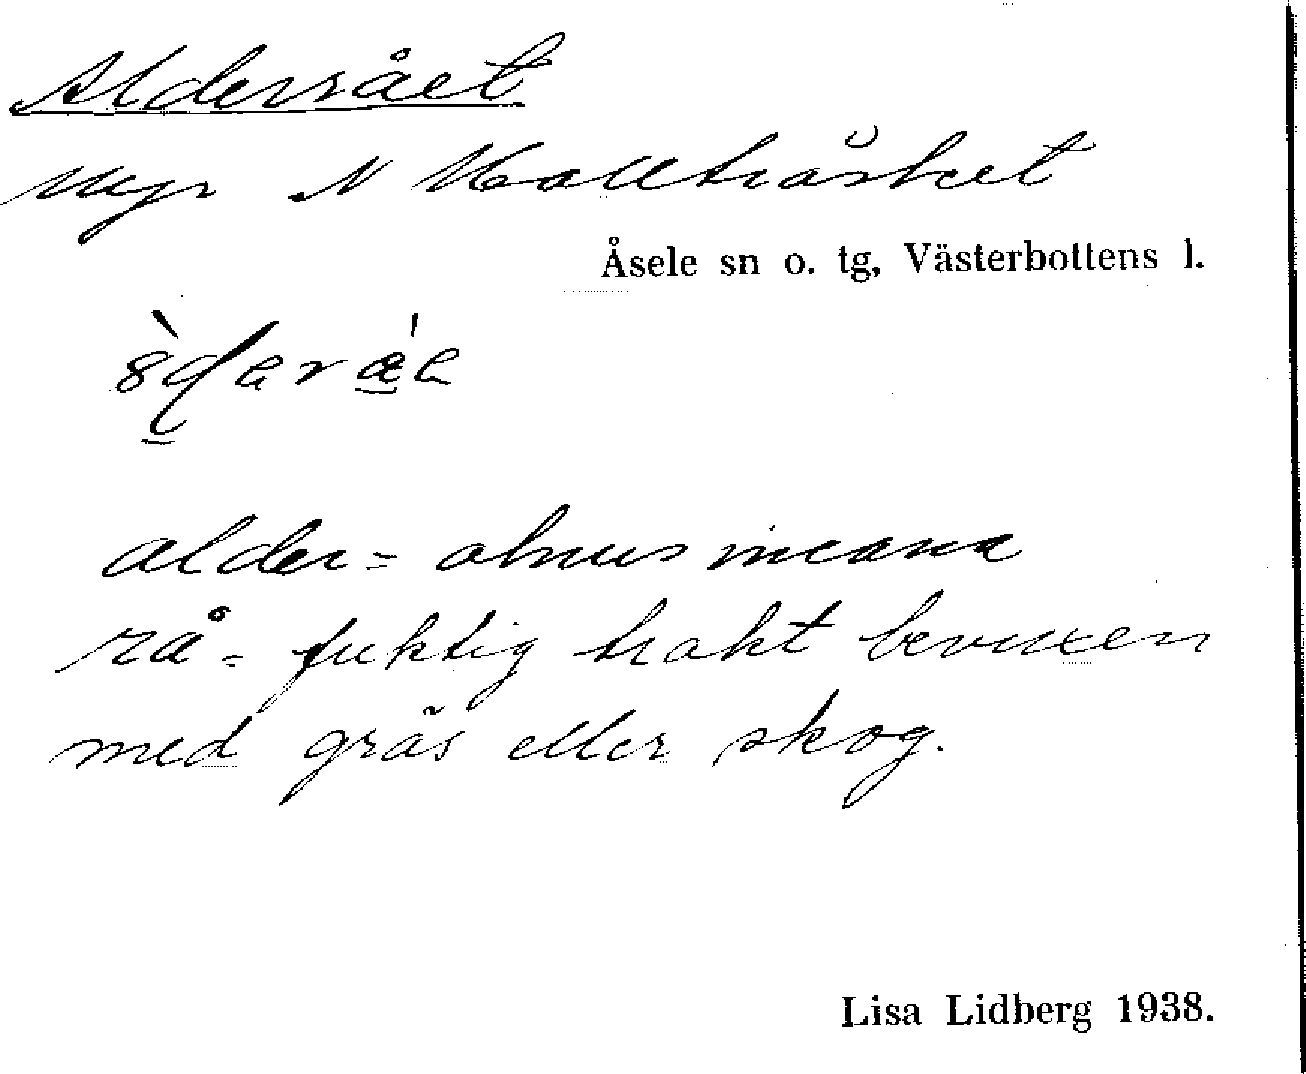 Alderrået
Myr N Hallträsket
Åsele sn o. tg, Västerbottens l.
alder = alnus incana
rå = fuktig trakt bevuxen
med gräs eller skog.
Lisa Lidberg 1938.